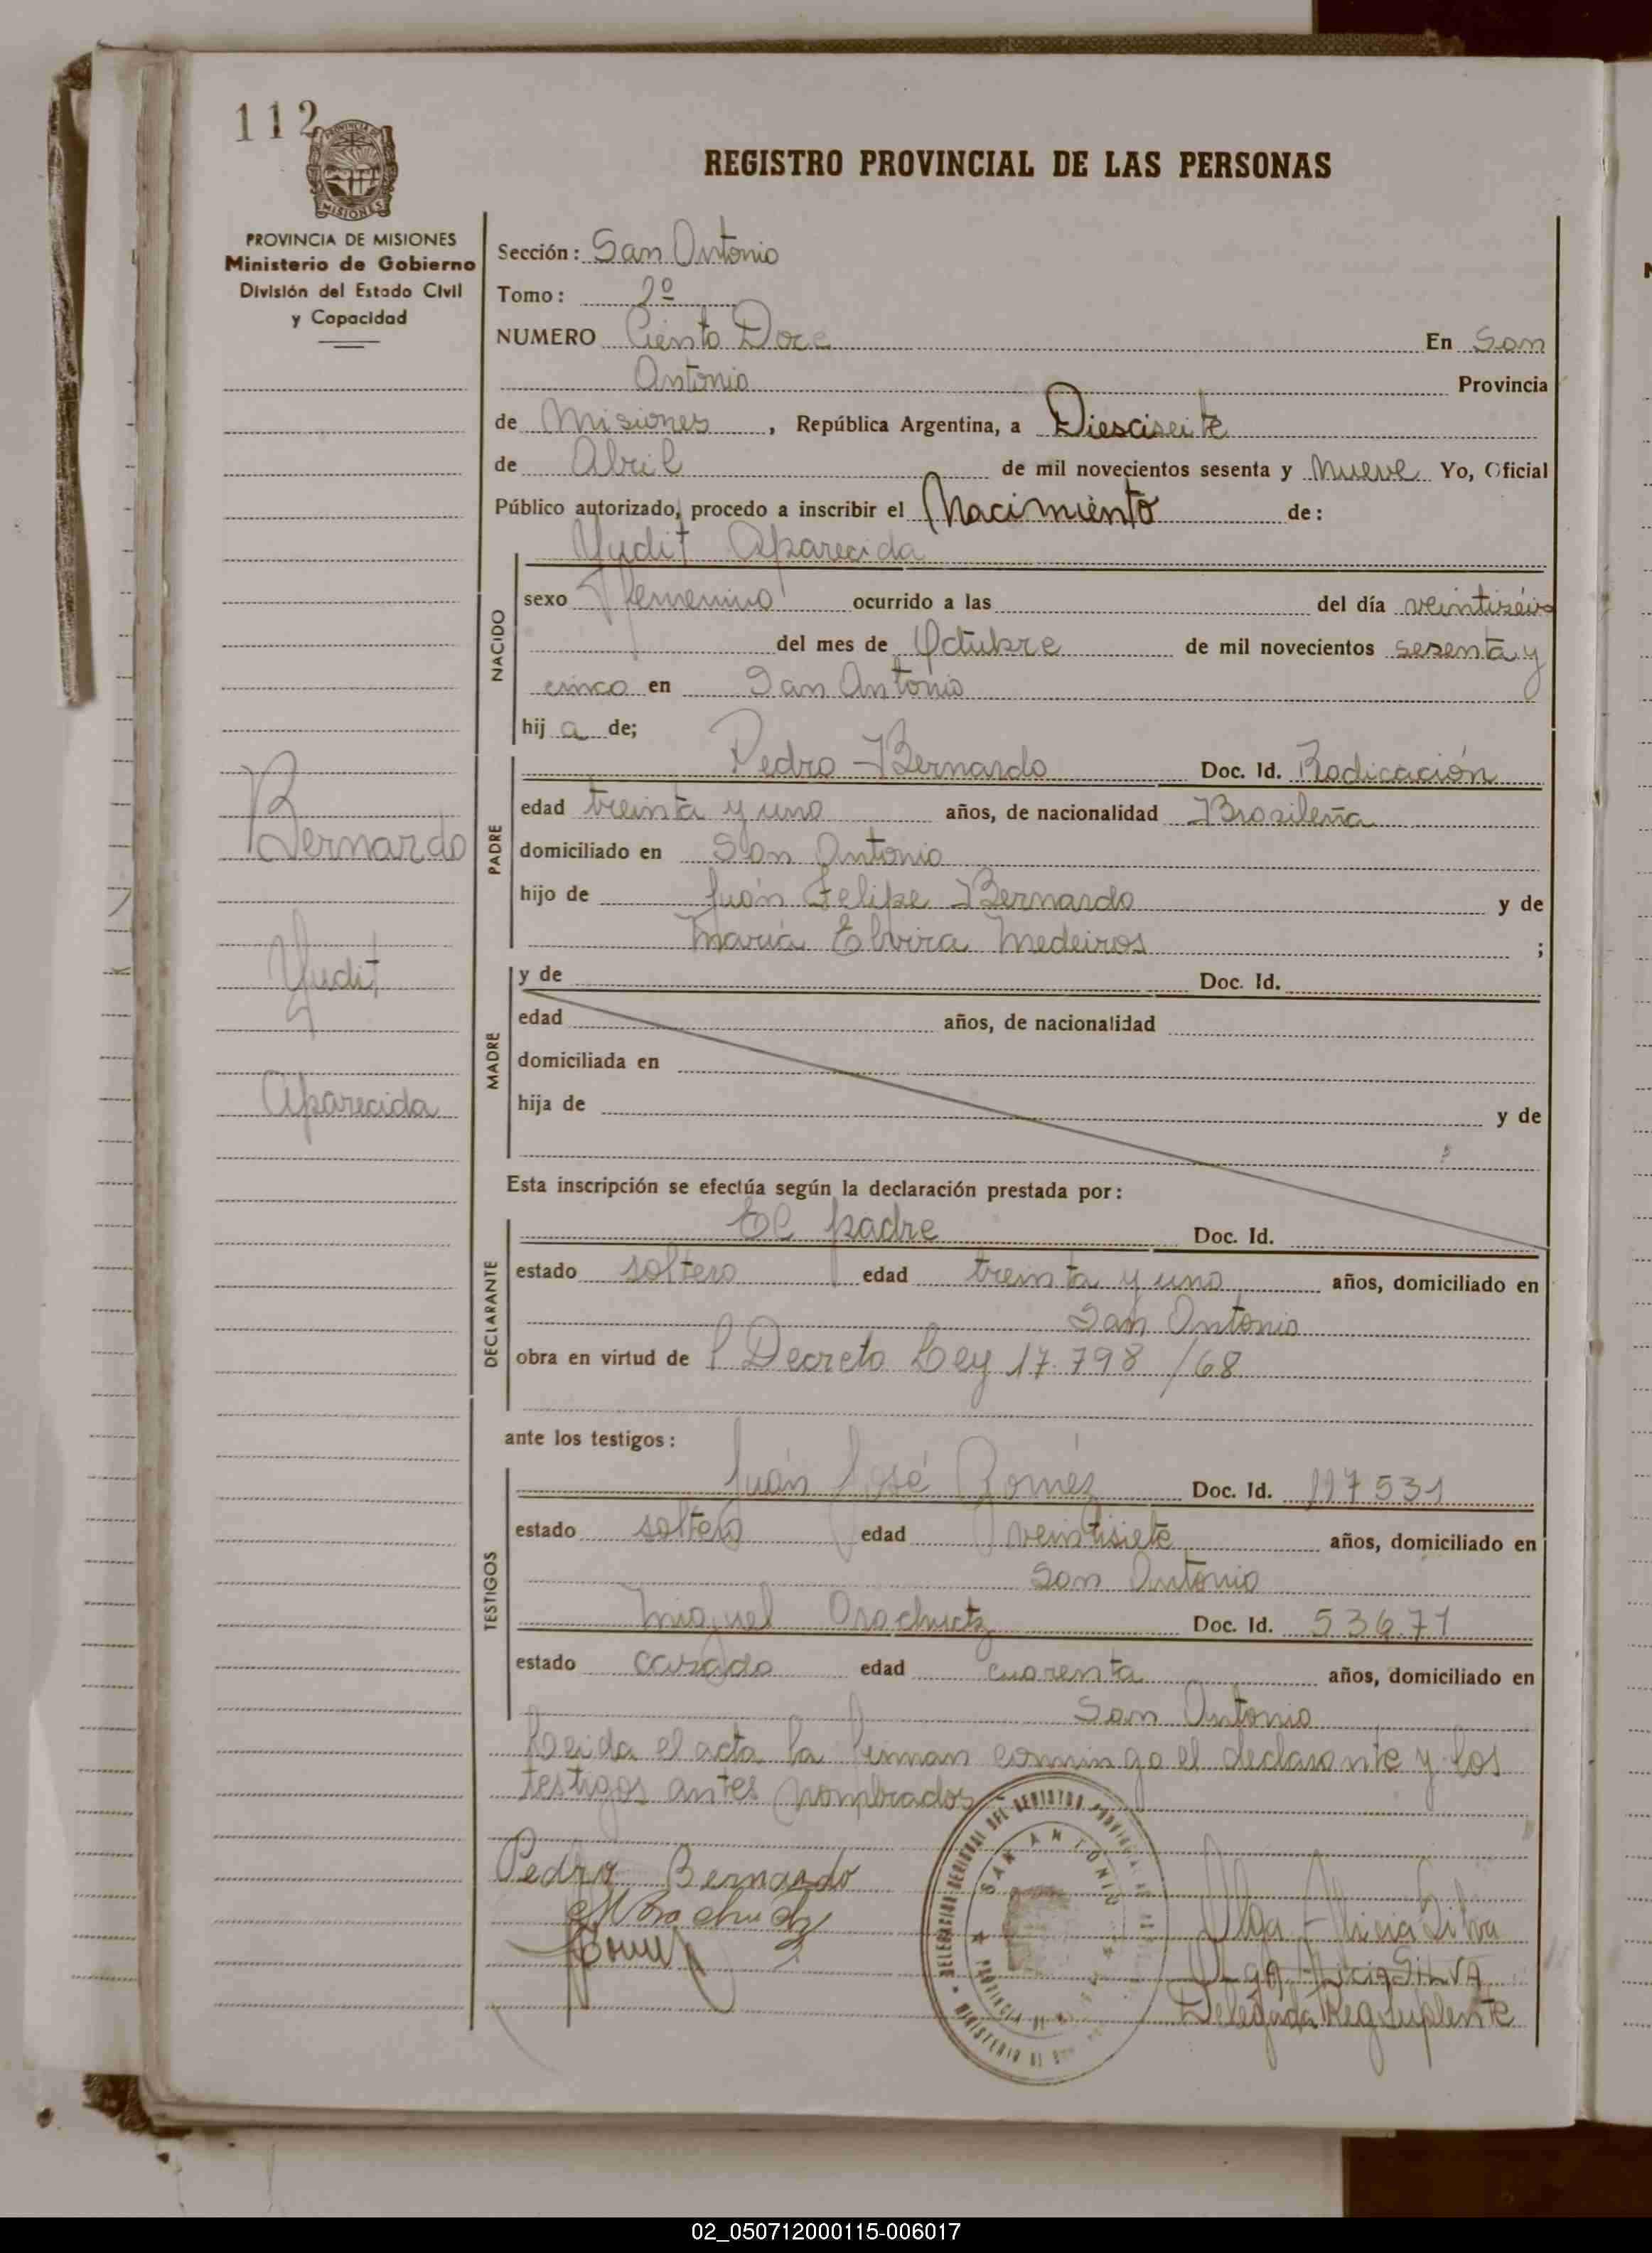 112
PROVINCIA DE
MISIONES
REGISTRO PROVINCIAL DE LAS PERSONAS
PROVINCIA DE MISIONES
Ministerio de Gobierno
División del Estado Civil
y Capacidad
Sección: San Antonio
Tomo: 2º
NUMERO Ciento Doce En San
Antonio Provincia
de Misiones, República Argentina, a Diesciseite
de Abril de mil novecientos sesenta y nueve Yo, Oficial
Público autorizado, procedo a inscribir el Nacimiento de:
Yudit Aparecida
NACIDO
sexo femenino ocurrido a las del día veintiséis
del mes de Octubre de mil novecientos sesenta y
cinco en San Antonio
hij a de;
Bernardo
Yudit
Aparecida
PADRE
Pedro Bernardo Doc. Id. Radicación
edad treinta y uno años, de nacionalidad Brasileña
domiciliado en San Antonio
hijo de Juan Felipe Bernardo y de
María Elvira Medeiros ;
MADRE
y de Doc. Id.
edad años, de nacionalidad
domiciliada en
hija de y de
Esta inscripción se efectúa según la declaración prestada por:
DECLARANTE
El padre Doc. Id.
estado soltero edad treinta y uno años, domiciliado en
San Antonio
obra en virtud de Decreto Ley 17.798/68
ante los testigos:
TESTIGOS
Juan José Gomez Doc. Id. 117531
estado soltero edad veintisiete años, domiciliado en
San Antonio
Miguel Doc. Id. 53671
estado casado edad cuarenta años, domiciliado en
San Antonio
Leida el acta la firman conmingo el declarante y los
testigos antes nombrados
Pedro Bernardo
SAN ANTONIO
Olga Alicia Silva
Olga Alicia SILVA
Delegada Reg Suplente
02_050712000115-006017